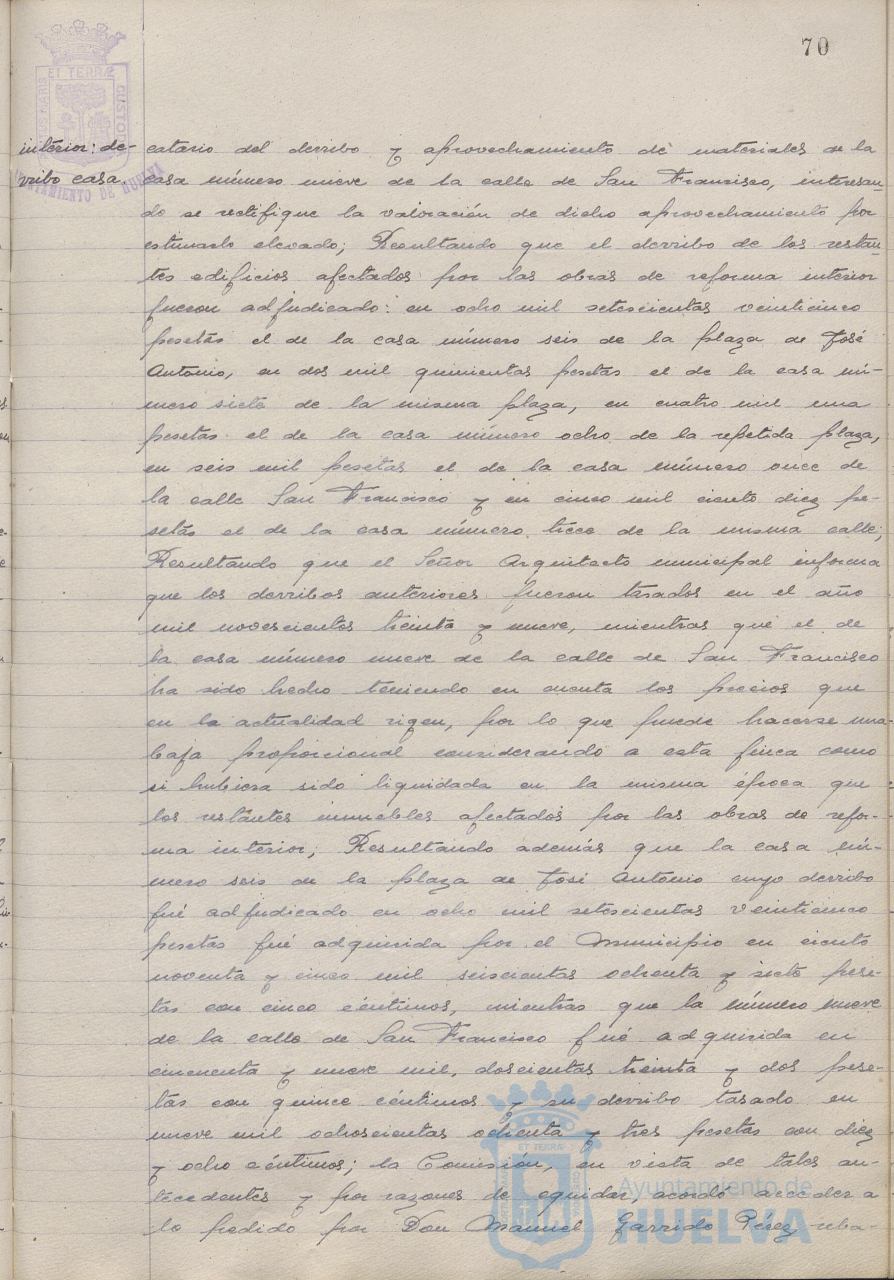 70
interior: de-
rribo casa.
catario del derribo y aprovechamiento de materiales de la
casa número nueve de la calle de San Francisco, interesan-
do se rectifique la valoración de dicho aprovechamiento por
estimarlo elevado; Resultando que el derribo de los restan-
tes edificios afectados por las obras de reforma interior
fueron adjudicado: en ocho mil setescientas veinticinco
pesetas el de la casa número seis de la plaza de José
Antonio, en dos mil quinientas pesetas el de la casa nú-
mero siete de la misma plaza, en cuatro mil una
pesetas el de la casa número ocho de la repetida plaza,
en seis mil pesetas el de la casa número once de
la calle San Francisco y en cinco mil ciento diez pe-
setas el de la casa número trece de la misma calle;
Resultando que el Señor Arquitecto municipal informa
que los derribos anteriores fueron tasados en el año
mil novescientos treinta y nueve, mientras que el de
la casa número nueve de la calle de San Francisco
ha sido hecho teniendo en cuenta los precios que
en la actualidad rigen, por lo que puede hacerse una
baja proporcional considerando a esta finca como
si hubiera sido liquidada en la misma época que
los restantes inmuebles afectados por las obras de refor-
ma interior; Resultando además que la casa nú-
mero seis de la plaza de José Antonio cuyo derribo
fué adjudicado en ocho mil setescientas veinticinco
pesetas fué adquirida por el Municipio en ciento
noventa y cinco mil seiscientas ochenta y siete pese-
tas con cinco céntimos, mientras que la número nueve
de la calle de San Francisco fué adquirida en
cincuenta y nueve mil, doscientas treinta y dos pese-
tas con quince céntimos y su derribo tasado en
nueve mil ochoscientas ochenta y tres pesetas con diez
y ocho céntimos; la Comisión, en vista de tales an-
tecedentes y por razones de equidad, acordó acceder a
lo pedido por Don Manuel Garrido Pérez, reba-
ET TERRÆ
CUSTODIA
AYUNTAMIENTO DE HUELVA
Ayuntamiento de
HUELVA